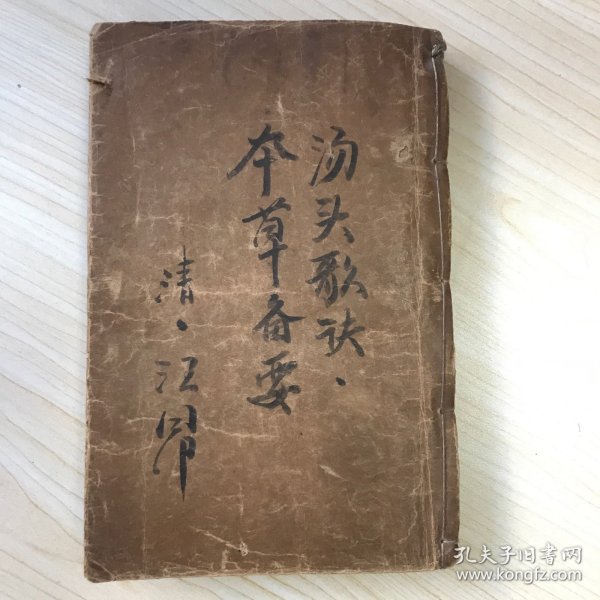 汤头歌诀、
本草备要
清、汪昂
孔夫子旧书网
www.kongfz.com